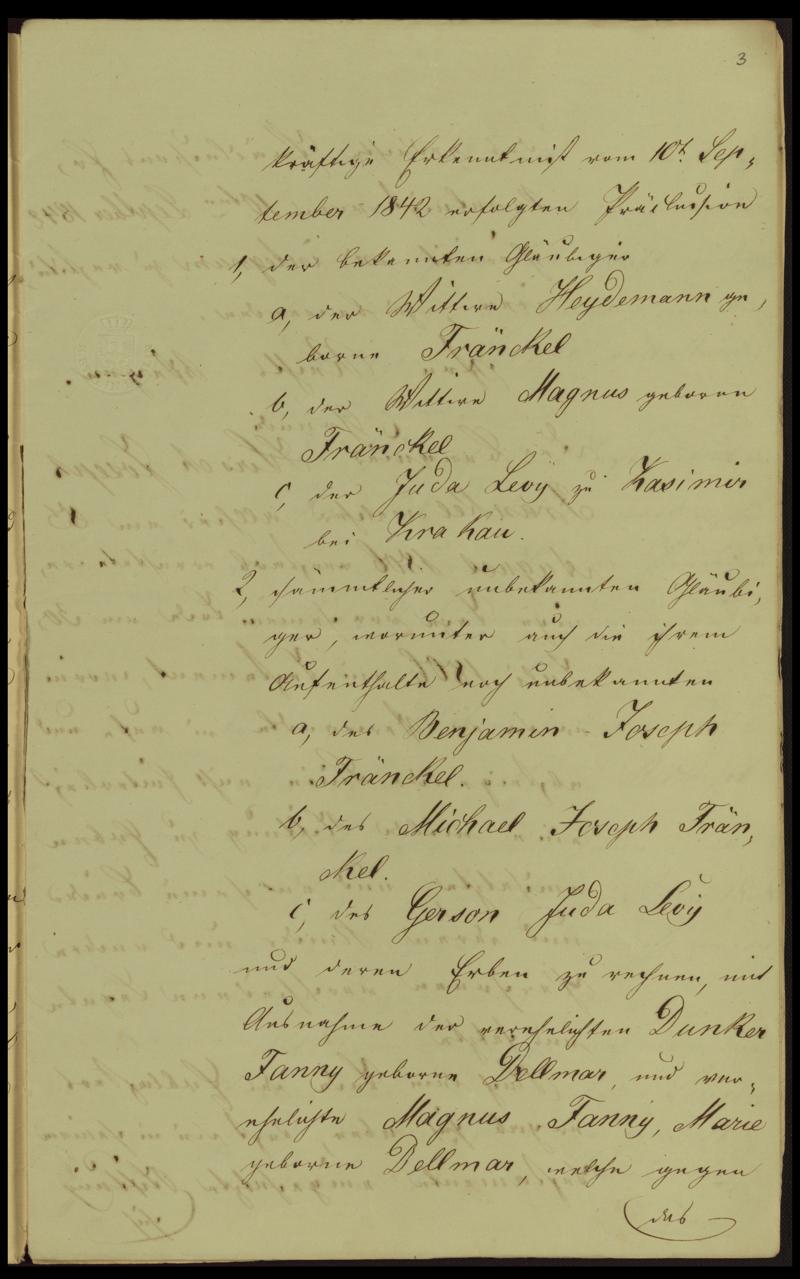 3
kräftige Erkenntniß vom 10t. Sep-
tember 1842 erfolgten Präclusion
1, der bekannten Gläubiger
a, der Wittwe Heydemann ge,
borne Fränckel
b, der Wittwe Magnus geborne
Fränckel
c, der Juda Levÿ zu Kasimir
bei Krakau.
2, sämmtlicher unbekannten Gläubi,
ger, worunter auch die ihrem
Aufenthalte noch unbekannten
a, des Benjamin Joseph
Fränckel.
b, des Michael Joseph Frän,
ckel.
c, des Gerson Juda Levÿ
und deren Erben zu rechnen, mit
Ausnahme der verehelichten Dunker
Fanny geborne Dellmar, und ver-
ehelichte Magnus, Fanny, Marie
geborne Dellmar, welche gegen
das